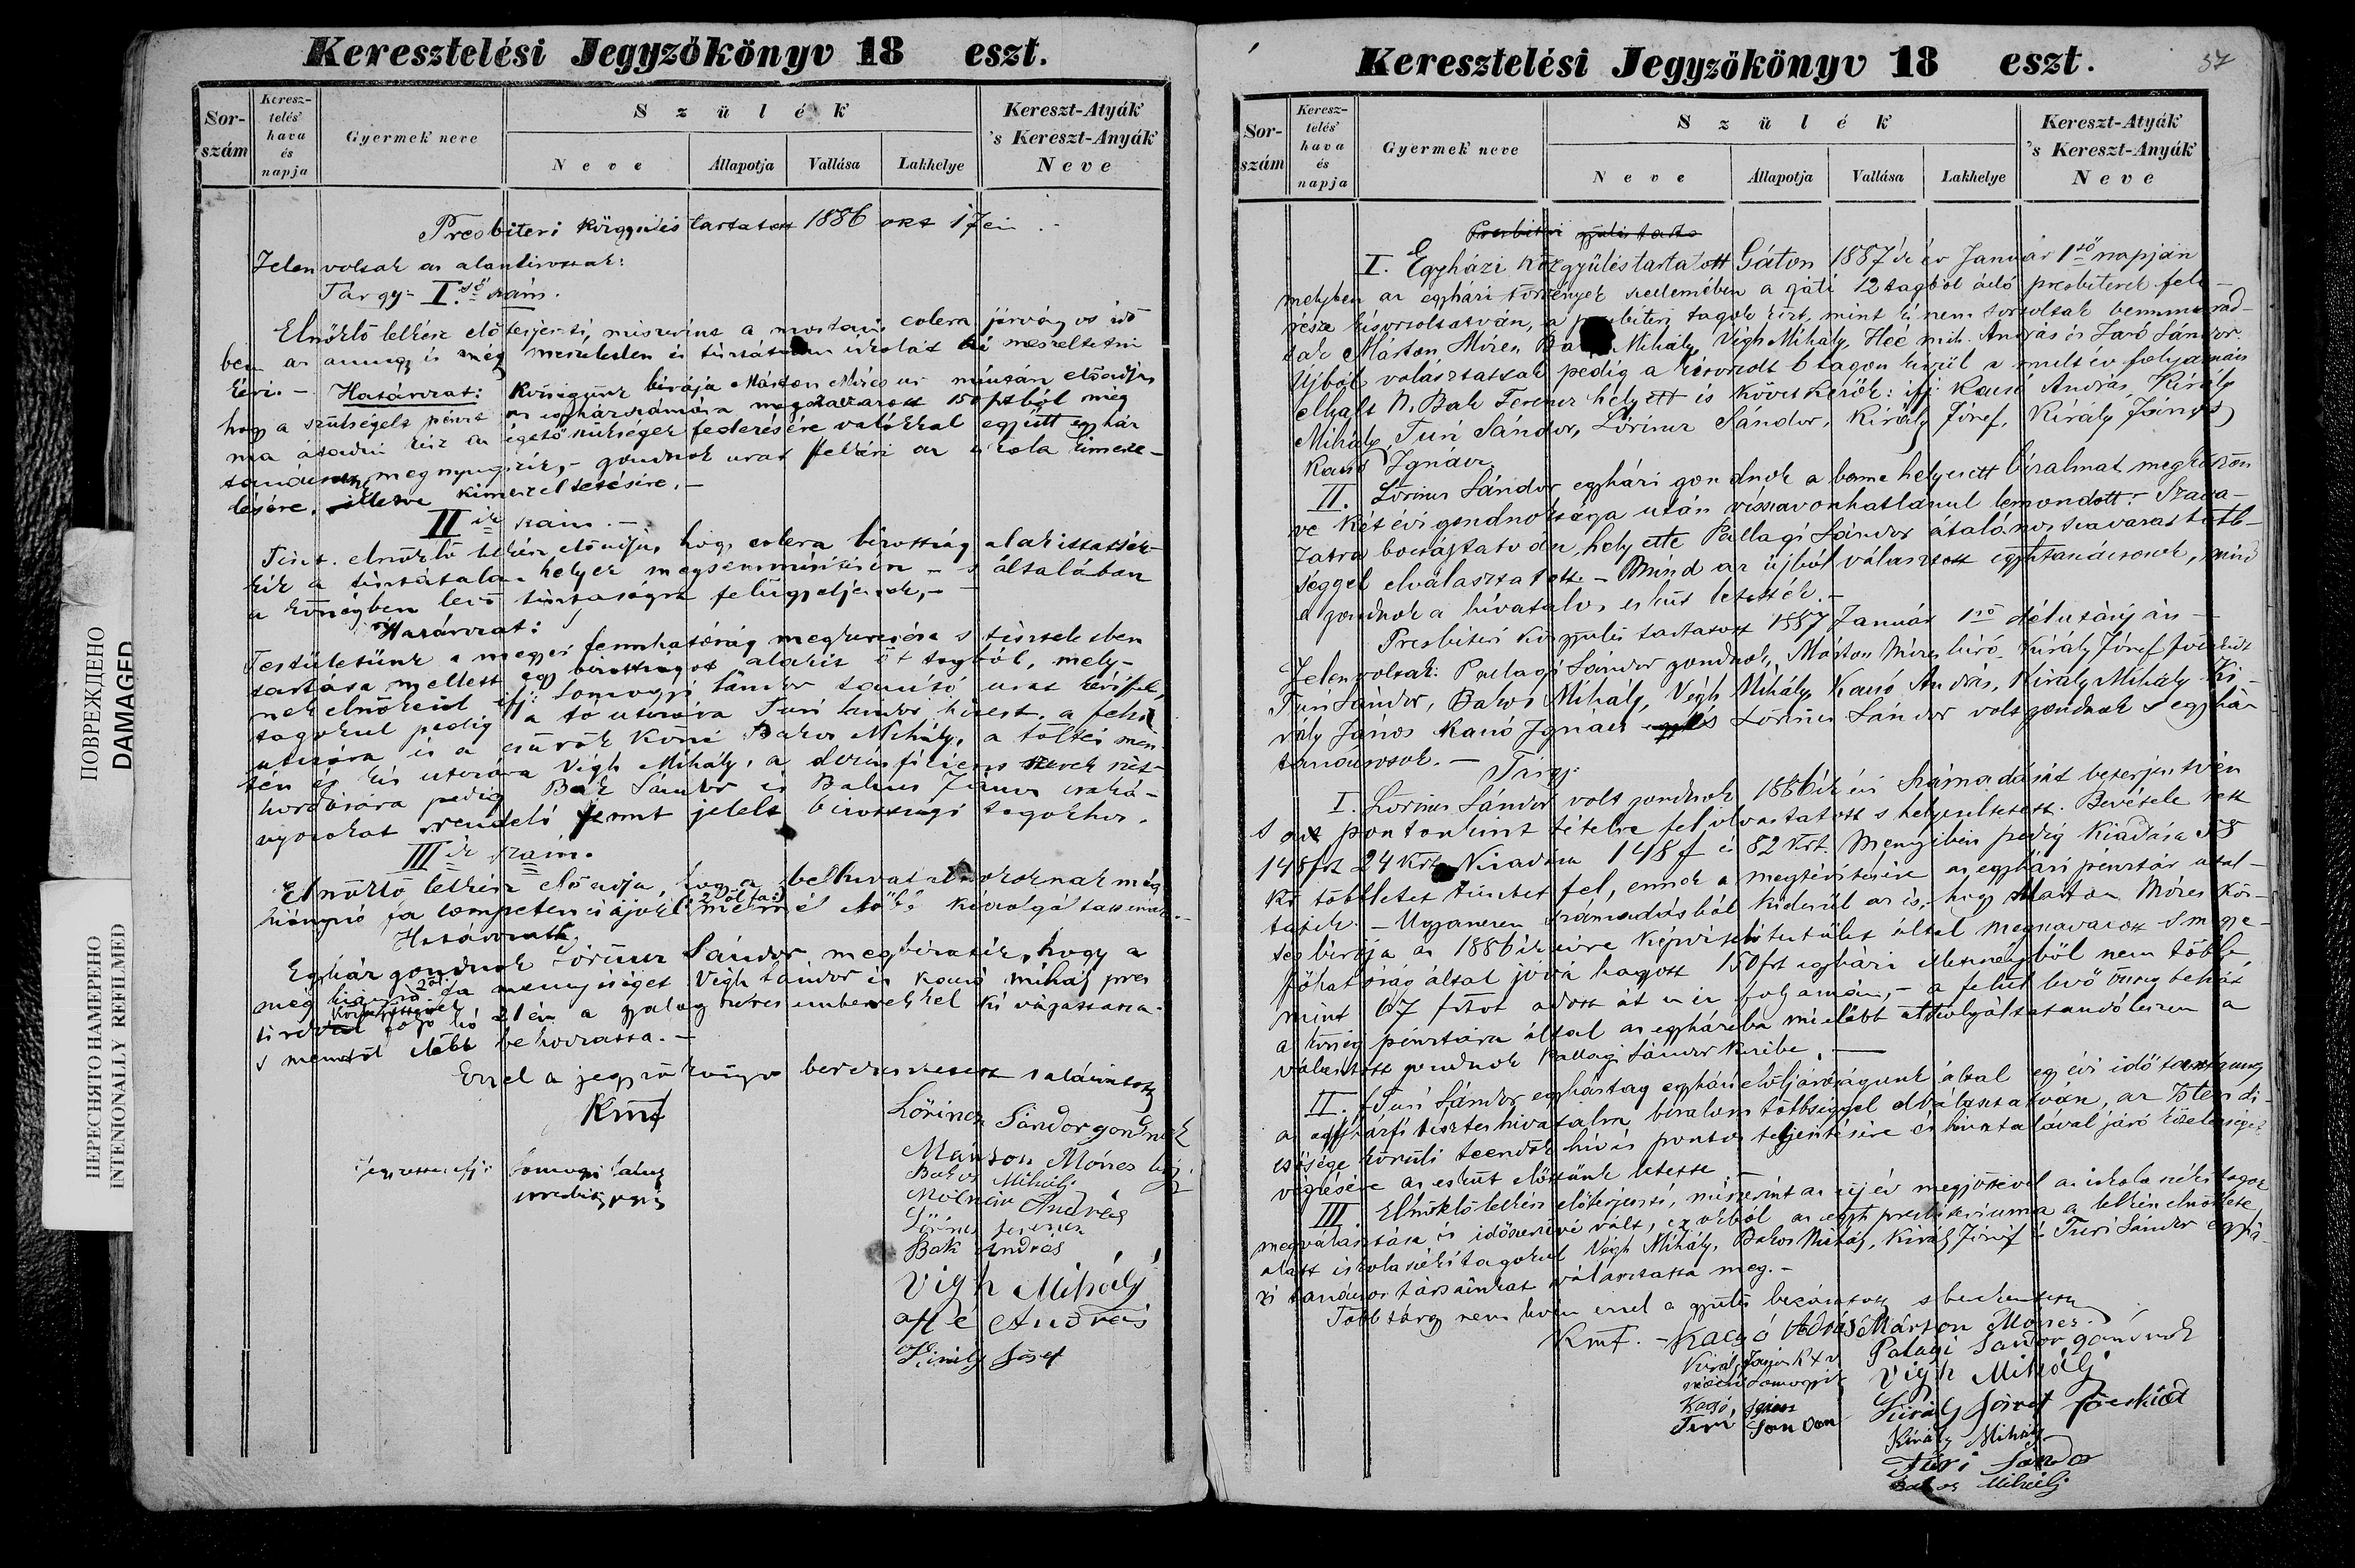 Keresztelési Jegyzőkönyv 18 eszt.
Sor-szám
Keresz-telés' hava és napja
Gyermek neve
Szülék
Neve
Állapotja
Vallása
Lakhelye
Kereszt-Atyák 's Kereszt-Anyák Neve
Presbiteri közgyülés tartatott 1886 okt 17én.
Jelen voltak az alantirottak:
Tárgy: I.ső szám.
Elnöklő lelkész előterjeszti, miszerint a mostani colera járványos idő
ben az amugy is még meszeletlen és iskolát ki meszeltetni
kéri. – Határozat: Községünk birája Márton Móres ur miután előadja,
hogy a szükséges pénzt az egyház számára megszavazott 150 ftból még
ma átadni kész az égető szükségek fedezésére valókkal együtt egyház
tanácsunk megnyugszik, – gondnok urat felkéri az iskola kimesze-
lésére, illetve kimeszeltetésére. –
IIik szám. –
Tiszt. elnöklő lelkész előadja, hogy colera bizottság alakittassék
a helyek megsemmisítésén – s általában
a községben levő tisztaságra felügyeljenek, –
Határozat:
Testületünk a megyei fennhatóság tiszteletben
tartása mellett egy bizottságot alakit öt tagból, mely-
nek elnökéül ifj. Somogyi Sándor tanító urat kéri fel,
tagokul pedig a tó utcára Turi Sándor a felső
utcára és a Bakos Mihály, a töltés men-
tén és kis utcára Vígh Mihály, a szerek szét-
hordására pedig Bak Sándor és Balezs János
rendeli fennt jelelt bizottsági tagokhoz.
IIIik szám.
Elnöklő lelkész előadja, hogy a még
hiányzó fa competenciájok 2 öl fa
Határozat.
Egyház gondnok Lőrincz Sándor megbizatik, hogy a
még hiányzó 2 öl fa mennyiséget Vígh Sándor és Kacsó Mihály pres
21én a ki vágattassa
s mentől előbb be hozassa. –
Ezzel a jegyzőkönyv berekesztetett s aláiratott
Kmf
Lőrincz Sándor gondnok
Márton Móres
Bakos Mihály
Molnár András
Lőrincz Ferencz
Bak András
Vigh Mihály
Héé András
Király Josef
Jegyzette ifj. Somogyi
ПОВРЕЖДЕНО
DAMAGED
ПЕРЕСНЯТО НАМЕРЕНО
INTENIONALLY REFILMED
Keresztelési Jegyzőkönyv 18 eszt.
57
Sor-szám
Keresz-telés' hava és napja
Gyermek neve
Szülék
Neve
Állapotja
Vallása
Lakhelye
Kereszt-Atyák 's Kereszt-Anyák Neve
I. Egyházi közgyülés tartatott Gáton 1887ik év Január 1ső napján
melyben az egyházi törvények szellemében a gáti 12 tagból álló presbiterek fele
része kisorsoltatván, a presbiteri tagok közt, mint ki nem sorsoltak bennmarad-
tak Márton Móres Mihály, Vígh Mihály, Héé András és Sándor.
Ujból választattak pedig a kisorsolt 6 tagon kivül a mult év folyamán
elhalt N. Bak Ferencz helyett is következők: ifj. Kacsó András, Király
Mihály Turi Sándor, Lőrincz Sándor, Király József, Király János
Kacsó Ignácz
II. Lőrincz Sándor egyházi gondnok a benne helyezett bizalmat megköszön
ve két évi gondnoksága után visszavonhatlanul lemondott. Szava-
zatra bocsájtatván, helyette Pallagi Sándor általános szavazattöbb-
séggel elválasztatott. – Mind az ujból választott egyh. tanácsosok, mind
a gondnok a hivatalos esküt letették. –
Presbiteri közgyülés tartatott 1887 Január 1ső délutánján –
Jelen voltak: Pallagi Sándor gondnok, Márton Móres biró, Király József főesküdt
Turi Sándor, Bakos Mihály, Vígh Mihály, Kacsó András, Király Mihály Ki-
rály János Kacsó Ignácz és Lőrincz Sándor volt gondnok s egyház
tanácsosok. –
Tárgy.
I. Lőrincz Sándor volt gondnok 1886ik évi számadását beterjesztvén
s az pontonkint tételre fel olvastatott s helyeseltetett. Bevétele tett
148 frt 24 krt Kiadása 148 f és 82 krt. Mennyiben pedig kiadása 58
kr többletet tüntet fel, ennek a megtérítésére az egyházi pénztár utal-
tatik. – Ugyanezen számadásból kiderül az is, hogy Márton Móres köz-
ség birája az 1886ik évre képviselőtestület által megszavazott s megye-
főhatóság által jóvá hagyott 150 frt egyházi illetményből nem több
mint 67 ftot adott át folyamán, – a felül levő összeg tehát
a község pénztára által az egyházéba mielőbb átszolgáltatandó leszen a
választott gondnok Pallagi Sándor kezibe. –
II. Turi Sándor egyháztag egyházi elöljáróságunk által egy évi idő tartamra
az egyházfi tisztes hivatalra, bizalom többséggel elválasztatván, az Isten di-
csősége körüli teendők hív és pontos teljesitésére és hivatalával járó kötelességek
végzésére az esküt előttünk letette. –
III. Elnöklő lelkész előterjeszti, miszerint az uj év megjöttével az iskolaszéki tagok
megválasztása is időszerüvé vált, ez okból az egyh. presbiteriuma a lelkész elnöklete
alatt iskolaszéki tagokul Vígh Mihály, Bakos Mihály, Király József és Turi Sándor egyhá-
zi tanácsos társainkat választatta meg. –
Több tárgy nem levén ezzel a gyülés bezáratott s berekesztetett
Kmf. – Kacsó András Márton Móres
Király János K + v
Palagi Sandor gondnok
Vígh Mihály
Kacsó Ignácz
Király József főesküdt
Turi Sandor
Király Mihály
Turi Sandor
Bakos Mihály